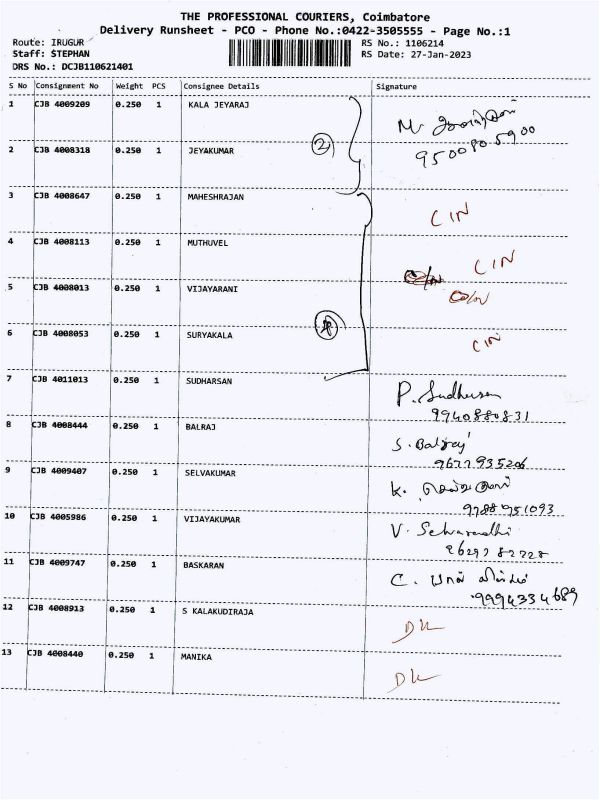 THE PROFESSIONAL COURIERS, Coimbatore
Delivery Runsheet - PCO - Phone No.:0422-3505555 - Page No.:1
Route: IRUGUR RS No.: 1106214
Staff: STEPHAN RS Date: 27-Jan-2023
DRS No.: DCJB110621401
S No Consignment No Weight PCS Consignee Details Signature
1 CJB 4009209 0.250 1 KALA JEYARAJ M.
9500805900
2 CJB 4008318 0.250 1 JEYAKUMAR 2
3 CJB 4008647 0.250 1 MAHESHRAJAN CIN
4 CJB 4008113 0.250 1 MUTHUVEL CIN
5 CJB 4008013 0.250 1 VIJAYARANI
6 CJB 4008053 0.250 1 SURYAKALA CIN
7 CJB 4011013 0.250 1 SUDHARSAN P. Sudharsan
9940880831
8 CJB 4008444 0.250 1 BALRAJ S. Balraj
9677935206
9 CJB 4009407 0.250 1 SELVAKUMAR K. செல்வகுமார்
9788951093
10 CJB 4005986 0.250 1 VIJAYAKUMAR V.
11 CJB 4009747 0.250 1 BASKARAN C.
9994334689
12 CJB 4008913 0.250 1 S KALAKUDIRAJA DL
13 CJB 4008440 0.250 1 MANIKA DL